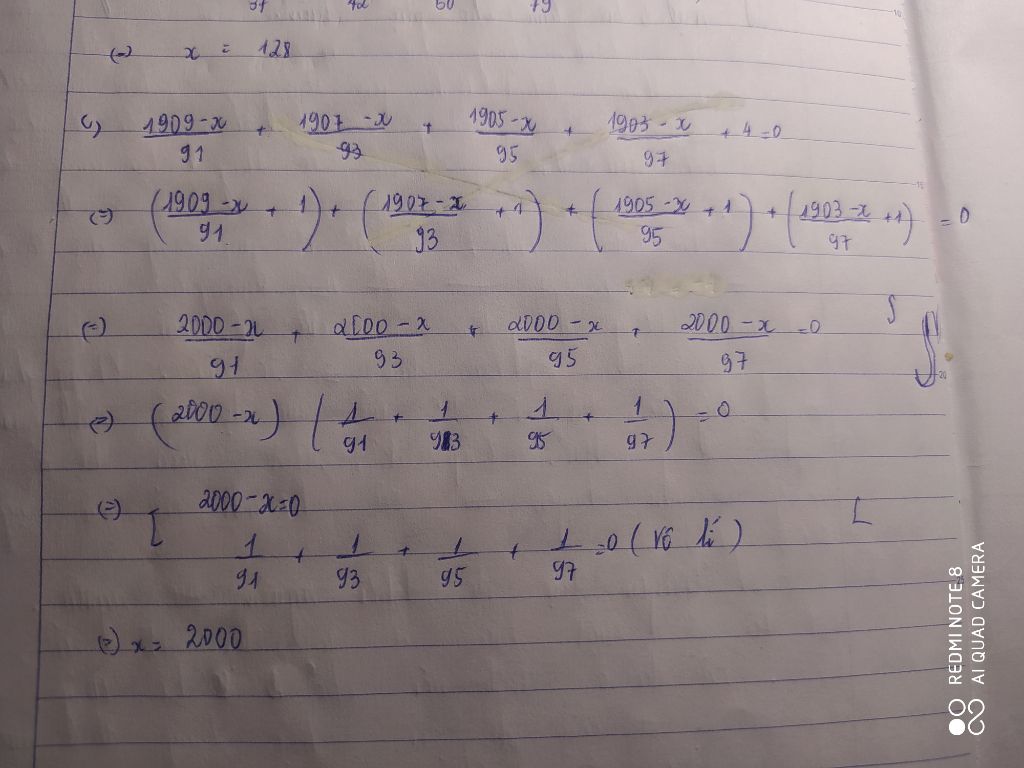 37 42 60 79
(=) x = 128
c) 1909-x/91 + 1907-x/93 + 1905-x/95 + 1903-x/97 + 4 = 0
(=) (1909-x/91 + 1) + (1907-x/93 + 1) + (1905-x/95 + 1) + (1903-x/97 + 1) = 0
(=) 2000-x/91 + 2000-x/93 + 2000-x/95 + 2000-x/97 = 0
(=) (2000-x) (1/91 + 1/93 + 1/95 + 1/97) = 0
(=) [ 2000-x=0
1/91 + 1/93 + 1/95 + 1/97 = 0 (vô lí)
(=) x = 2000
REDMI NOTE 8
AI QUAD CAMERA